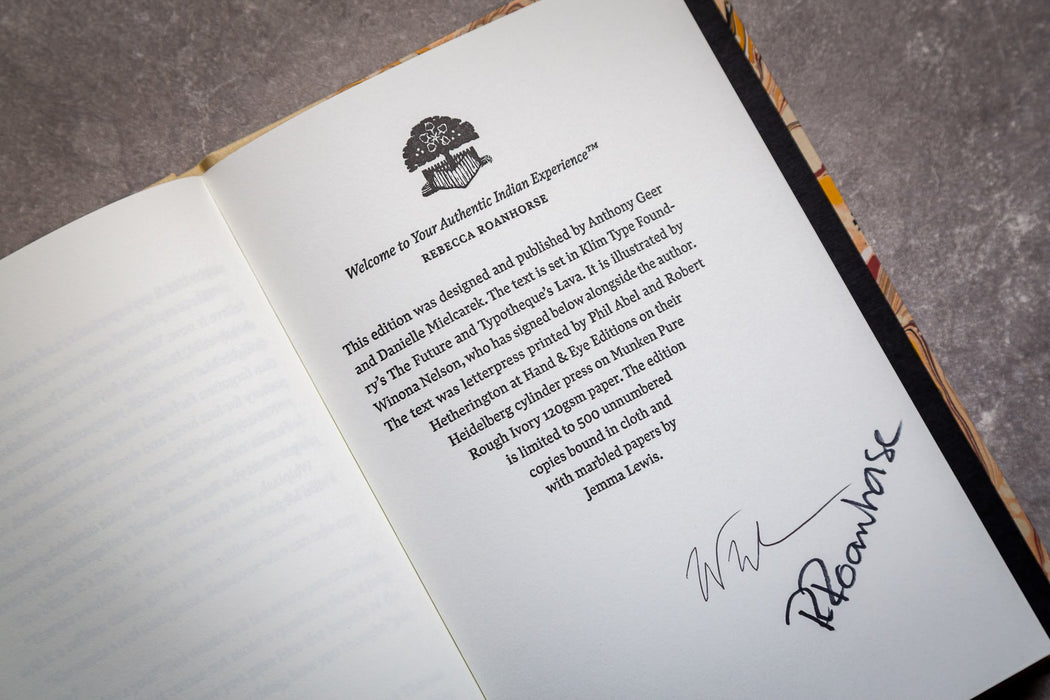 Welcome to Your Authentic Indian Experience™
REBECCA ROANHORSE
This edition was designed and published by Anthony Geer
and Danielle Mielcarek. The text is set in Klim Type Found-
ry's The Future and Typotheque's Lava. It is illustrated by
Winona Nelson, who has signed below alongside the author.
The text was letterpress printed by Phil Abel and Robert
Hetherington at Hand & Eye Editions on their
Heidelberg cylinder press on Munken Pure
Rough Ivory 120gsm paper. The edition
is limited to 500 unnumbered
copies bound in cloth and
with marbled papers by
Jemma Lewis.
RRoanhorse